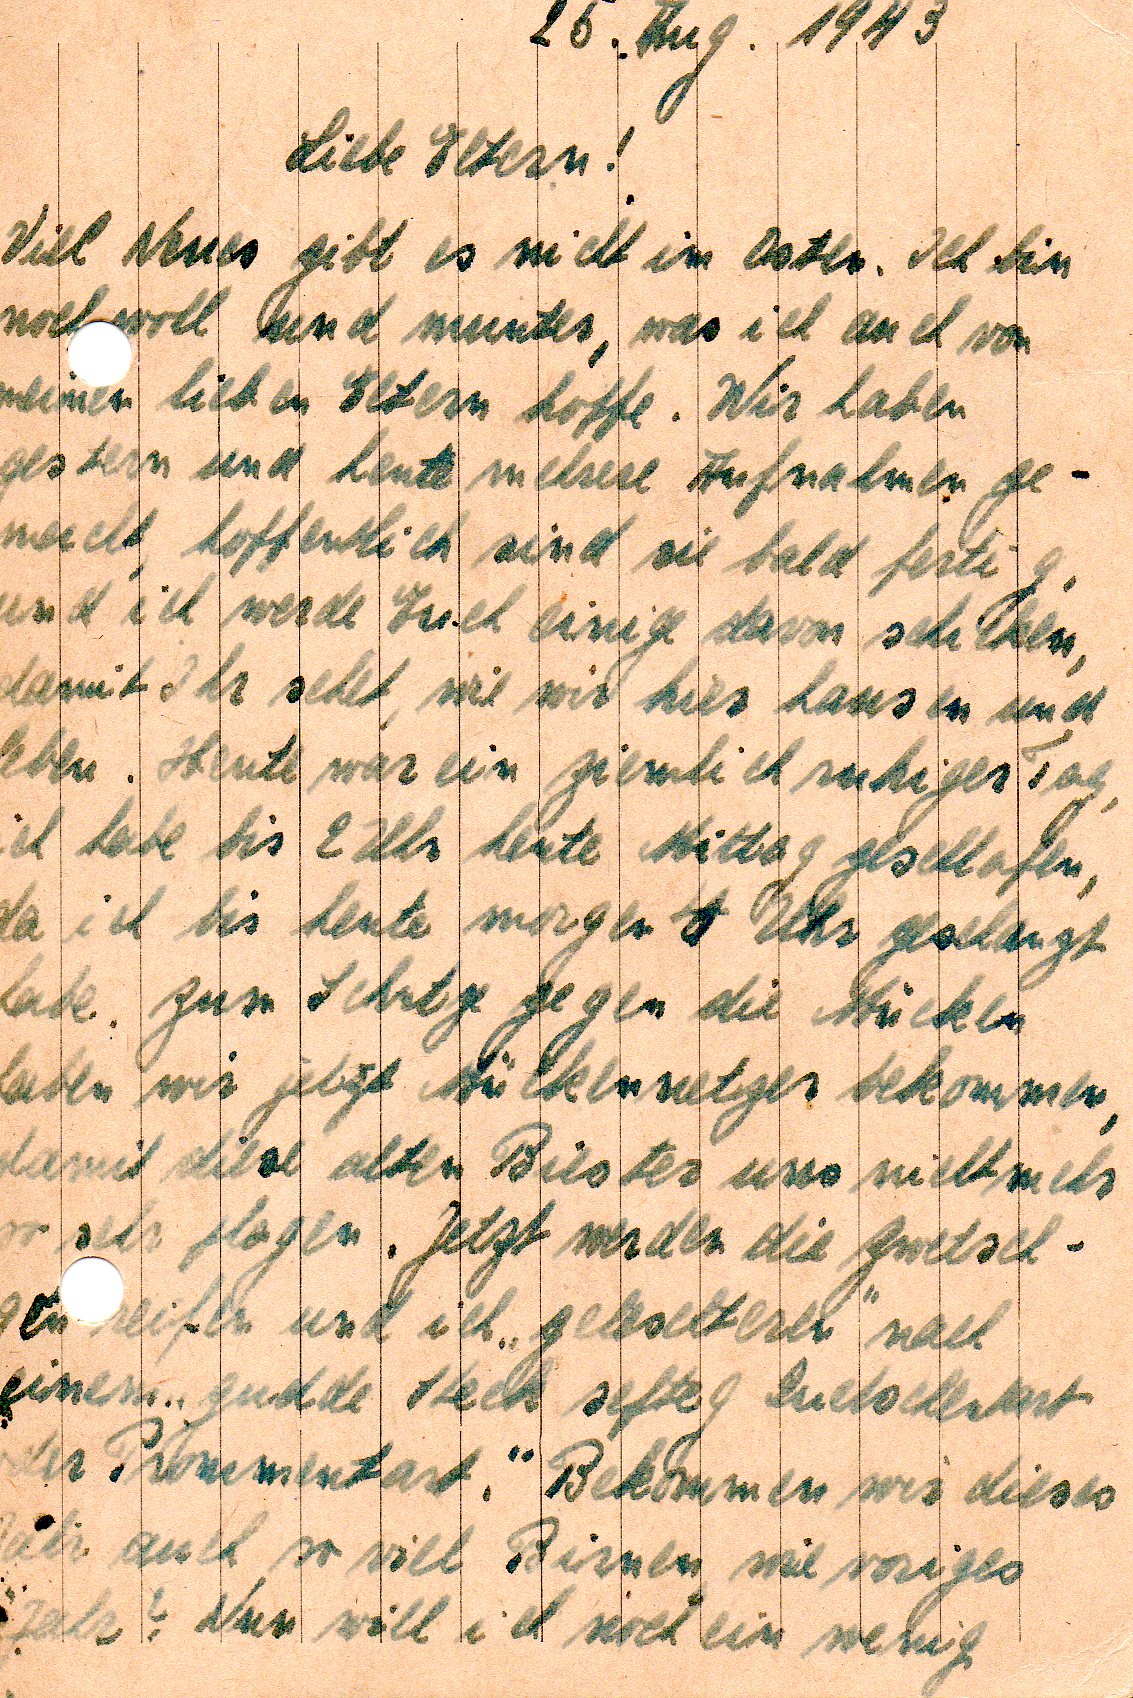 25. Aug. 1943
Liebe Eltern!
Viel Neues gibt es nicht im Osten. Ich bin
noch woll und munter, was ich auch von
meinen lieben Eltern hoffe. Wir haben
gestern und heute mehrere Aufnahmen ge-
macht, hoffentlich sind sie bald fertig,
und ich werde Euch einige davon schicken,
damit Ihr sehet, wie wir hier hausen und
leben. Heute war ein ziemlich ruhiger Tag,
ich habe bis 2 Uhr heute Mittag geschlafen,
da ich bis heute morgen Uhr geschanzt
habe. Zum Schutze gegen die Mücken
haben wir jetzt Mückennetzer bekommen,
damit diese alten Biester uns nicht mehr
so sehr plagen. Jetzt werden die Zwetsch-
gen reifen und ich nach
einem „gudde Steck Quetschentart
oder Prommentart." Bekommen wir dieses
Jahr auch so viel Birnen wie voriges
Jahr? Nun will ich noch ein wenig